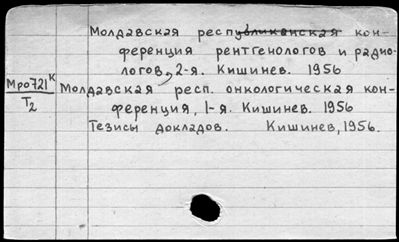 Молдавская республиканская кон-
ференция рентгенологов и радио-
логов, 2-я. Кишинев. 1956
Мро721к
Т2
Молдавская респ. онкологическая кон-
ференция, 1-я. Кишинев. 1956
Тезисы докладов. Кишинев, 1956.